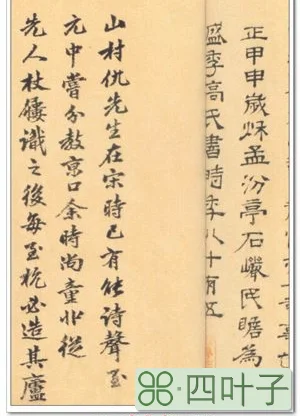 正甲申歲孟汾亭石巖民瞻為
盛季高氏書時季八十有五
山村仇先生在宋時已有能詩聲至
元中嘗分教京口余時尚童丱從
先人杖屨識之後每至杭必造其廬
四叶子